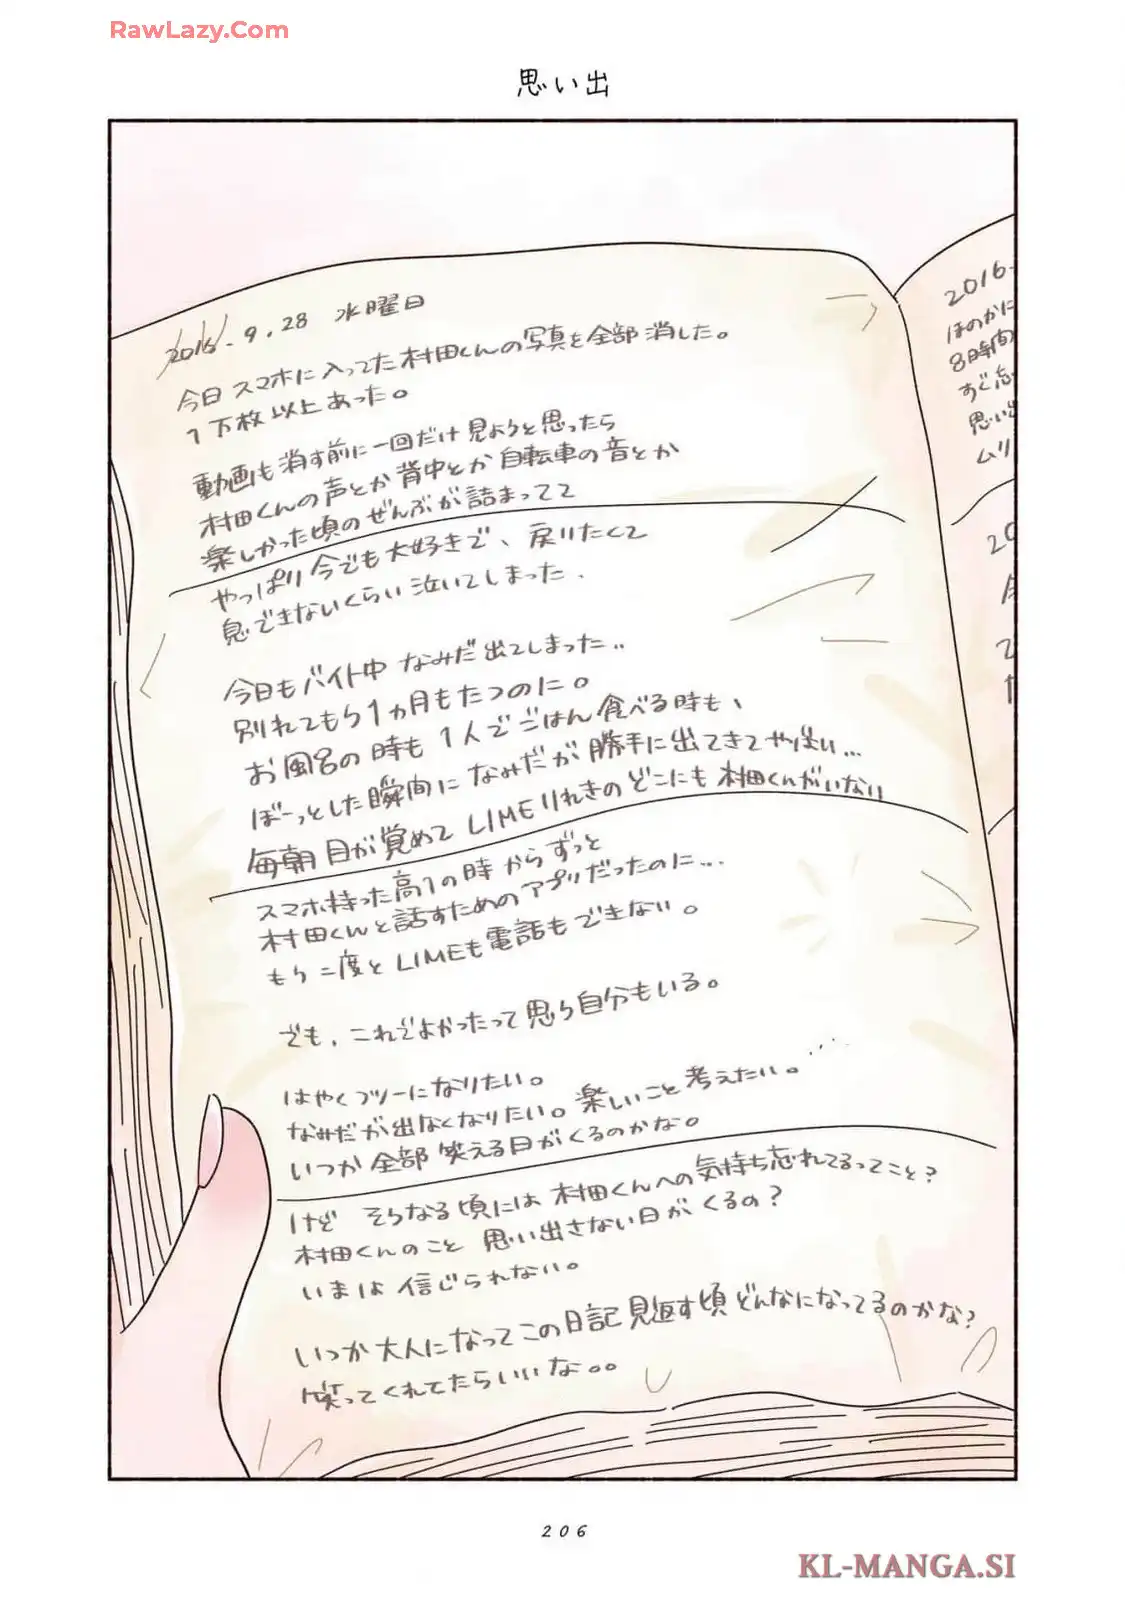 RawLazy.Com
思い出
2016.9.28 水曜日
今日スマホに入ってた村田くんの写真を全部消した。
1万枚以上あった。
動画も消す前に一回だけ見ようと思ったら
村田くんの声とか背中とか自転車の音とか
楽しかった頃のぜんぶが詰まってて
やっぱり今でも大好きで、戻りたくて
息できないくらい泣いてしまった.
今日もバイト中なみだ出てしまった..
別れてもう1ヵ月もたつのに。
お風呂の時も1人でごはん食べる時も、
ぼーっとした瞬間になみだが勝手に出てきてやばい...
毎朝目が覚めてLIMEりれきのどこにも村田くんがいない
スマホ持った高1の時からずっと
村田くんと話すためのアプリだったのに...
もう二度とLIMEも電話もできない。
でも、これでよかったって思う自分もいる。
はやくフツーになりたい。
なみだが出なくなりたい。楽しいこと考えたい。.....
いつか全部笑える日がくるのかな。
けど そうなる頃には村田くんへの気持ち忘れてるってこと?
村田くんのこと 思い出さない日がくるの?
いまは信じられない。
いつか大人になってこの日記見返す頃どんなになってるのかな?
笑ってくれてたらいいな。。
2016.
ほのかに
8時間
すぐ忘
思い出
ムリ
20
206
KL-MANGA.SI